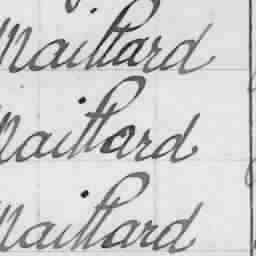 Maillard
Maillard
Maillard